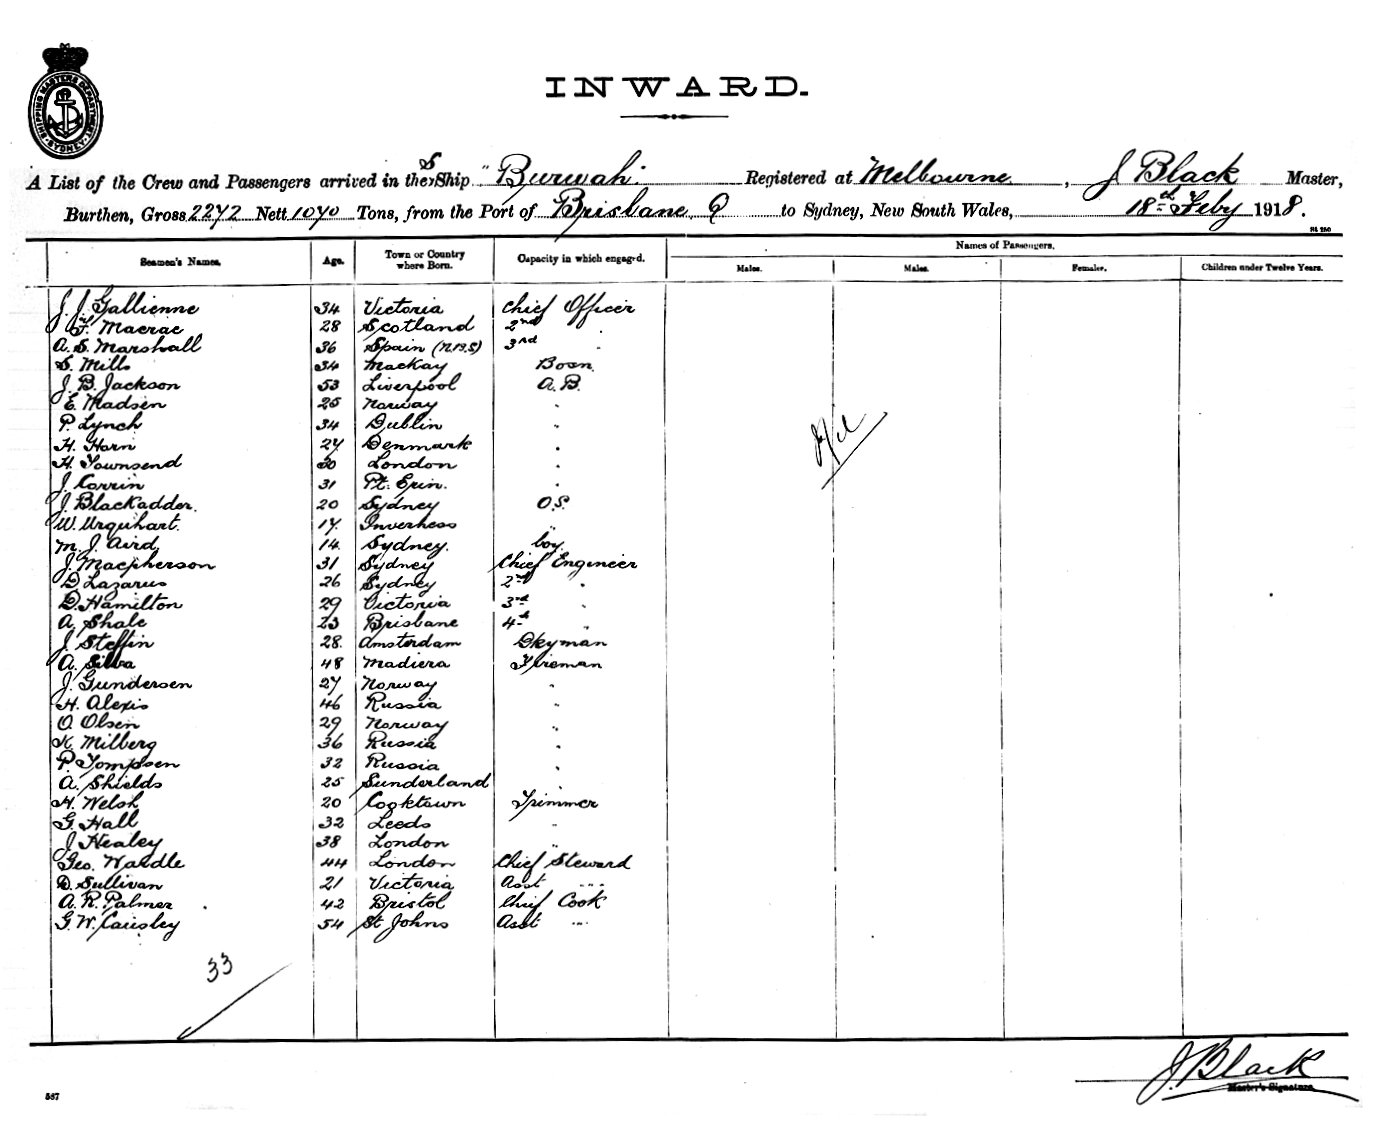 SHIPPING MASTERS DEPARTMENT SYDNEY
INWARD.
A List of the Crew and Passengers arrived in the S Ship "Burwah." Registered at Melbourne, J Black Master,
Burthen, Gross 2272 Nett 1070 Tons, from the Port of Brisbane, Q to Sydney, New South Wales, 18th Feby 1918.
Seamen's Names. Age. Town or Country where Born. Capacity in which engaged. Names of Passengers.
Males. Males. Females. Children under Twelve Years.
J. J. Gallienne 34 Victoria Chief Officer
F. Macrae 28 Scotland 2nd "
A. S. Marshall 36 Spain (N.B.S) 3rd "
S. Mills 34 Mackay Bosn.
J. B. Jackson 53 Liverpool A.B.
E. Madsen 25 Norway "
P. Lynch 34 Dublin "
H. Horn 27 Denmark "
H. Townsend 30 London "
J. Corrin 31 Pt. Erin. "
J. Blackadder. 20 Sydney O.S.
W. Urquhart. 17. Inverness "
M. J. Aird. 14. Sydney. boy.
J. Macpherson 31 Sydney Chief Engineer
D Lazarus 26 Sydney 2nd "
D. Hamilton 29 Victoria 3rd "
A. Shale 23 Brisbane 4th "
J. Steffin 28. Amsterdam Dkyman
A. Silva 48 Madiera Fireman
J. Gundersen 27 Norway "
H. Alexis 46 Russia "
O. Olsen 29 Norway "
K. Milberg 36 Russia "
P. Tompsen 32 Russia "
A. Shields 25 Sunderland "
H. Welsh 20 Cooktown Trimmer
G. Hall 32 Leeds "
J. Healey 38 London "
Geo. Wardle 44 London Chief Steward
D. Sullivan 21 Victoria Asst "
A. R. Palmer 42 Bristol Chief Cook
G. W. Causley 54 St Johns Asst "
Nil
33
J. Black
Master's Signature.
587